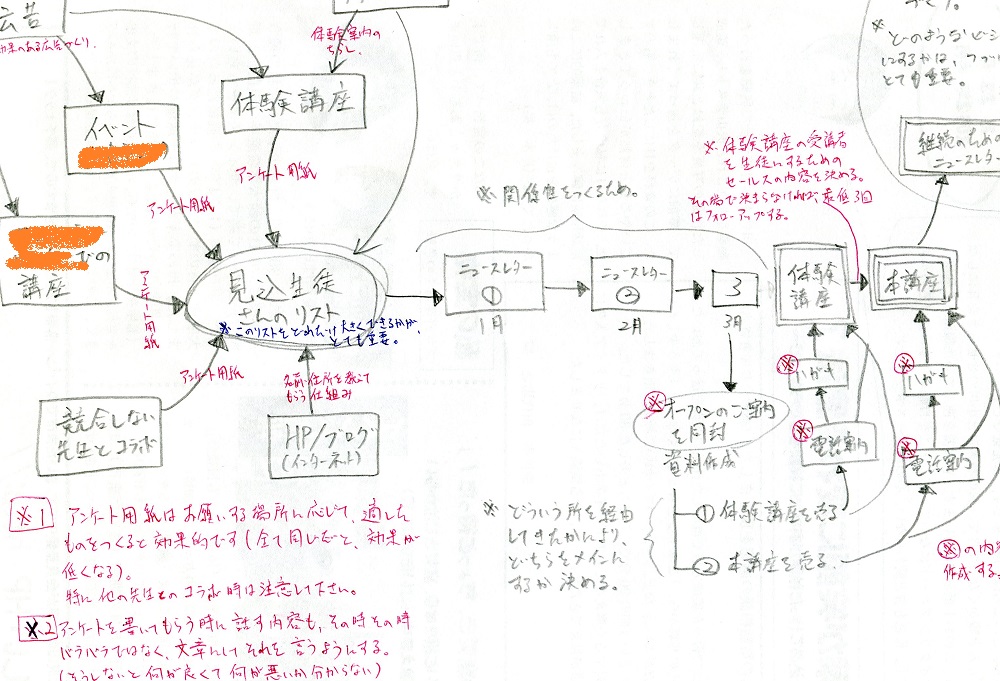 広告
効果のある広告づくり.
体験案内の
ちらし.
イベント
体験講座
アンケート用紙
アンケート用紙
での
講座
アンケート用紙
見込生徒
さんのリスト
※このリストをどれだけ大きくできるかが、
とても重要。
アンケート用紙
名前・住所を教えて
もらう仕組み
競合しない
先生とコラボ
HP/ブログ
(インターネット)
※ 関係性をつくるため。
ニュースレター
①
1月
ニュースレター
②
2月
3
3月
※オープンのご案内
を同封
資料作成
① 体験講座を売る
② 本講座を売る.
※ どういう所を経由
してきたかにより、
どちらをメインに
するか決める。
※ 体験講座の受講者
を生徒にするための
セールスの内容を決める。
その場で決まらなければ、最低3回
はフォローアップする。
体験
講座
※
ハガキ
※
電話案内
本講座
※
ハガキ
※
電話案内
※どのような
にするかは、
とても重要。
継続のための
ニュースレター
※の内
作成する
※1 アンケート用紙はお願いする場所に応じて、適した
ものをつくると効果的です(全て同じだと、効果が
低くなる)。
特に他の先生とのコラボ時は注意して下さい。
※2 アンケートを書いてもらう時に話す内容も、その時その時
バラバラではなく、文章にしてそれを言うようにする。
(そうしないと何が良くて何が悪いか分からない)